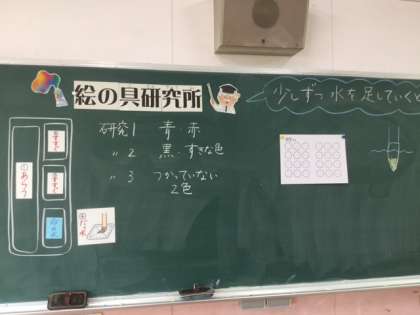 絵の具研究所
少しずつ水を足していくと
研究1 青 赤
〃 2 黒・すきな色
〃 3 つかっていない
2色
①あらう